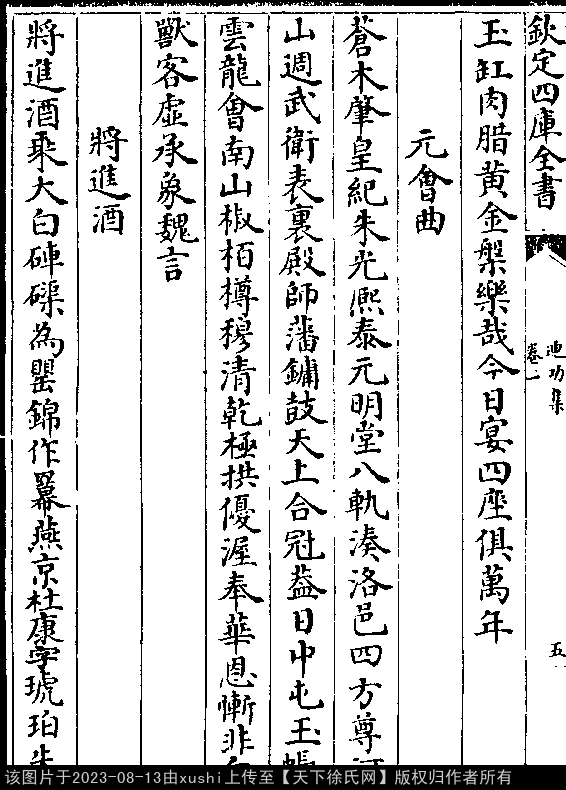 欽定四庫全書
迪功集
卷一
五
玉缸肉腊黄金槃樂哉今日宴四座俱萬年
元會曲
蒼木肇皇紀朱光熈泰元明堂八軌湊洛邑四方尊
山週武衛表裏殿師藩鏞鼓天上合冠葢日中屯玉帳
雲龍會南山椒栢樽穆清乾極拱優渥奉華恩慚非
獸客虛承象魏言
將進酒
將進酒乗大白硨磲為罌錦作冪燕京杜康字琥珀
该图片于2023-08-13由xushi上传至【天下徐氏网】版权归作者所有